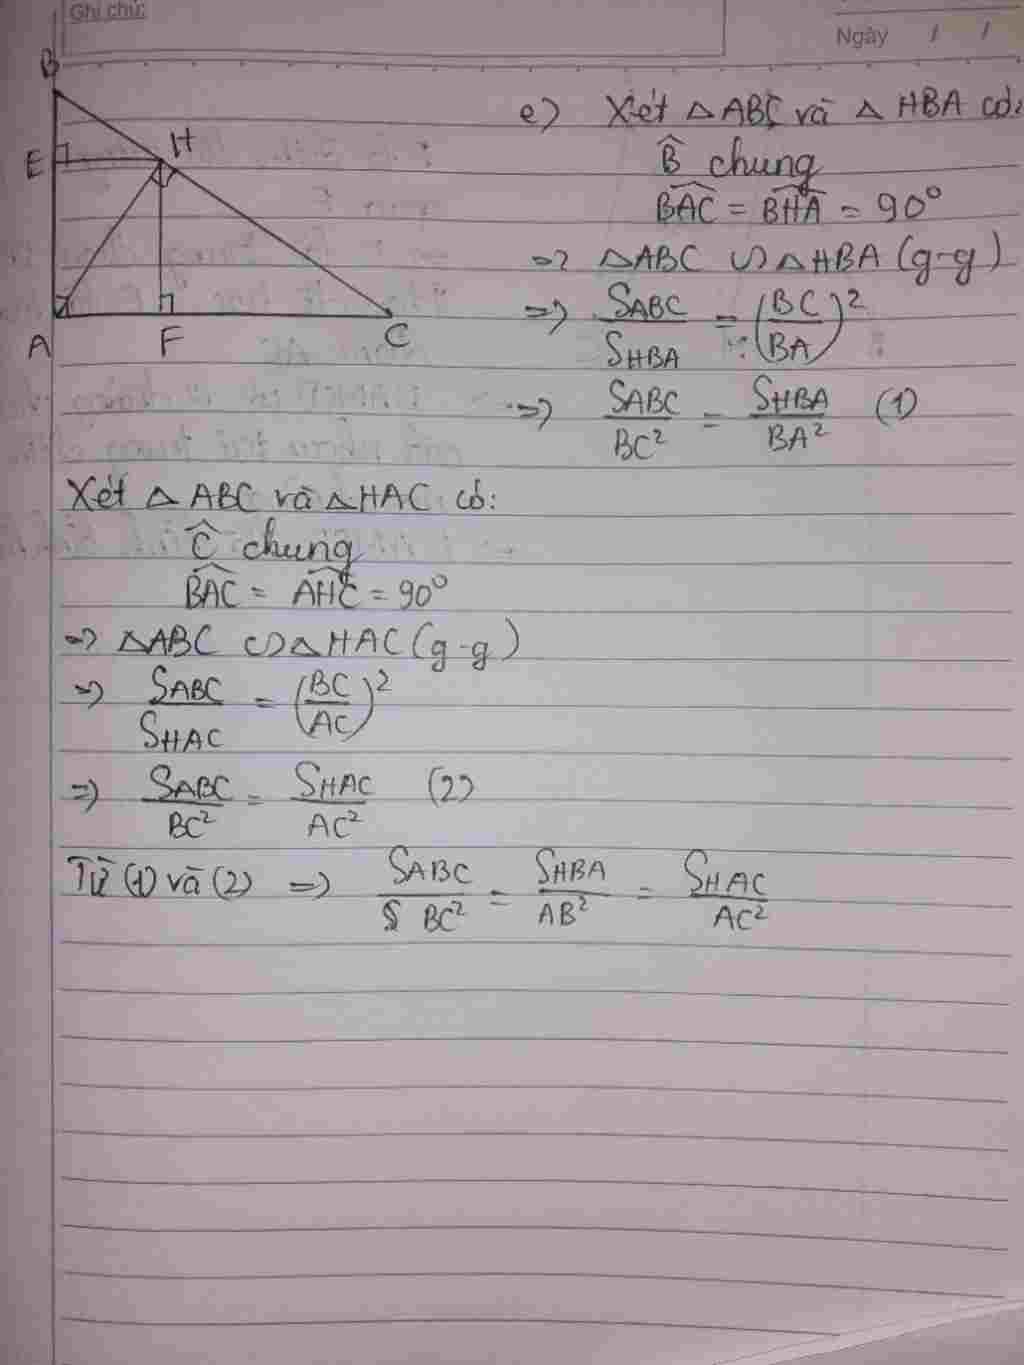 Ghi chú:
Ngày / /
B
E
H
A
F
C
e) Xét △ABC và △HBA có:
B̂ chung
BAC = BHA = 90°
=> △ABC ∽ △HBA (g-g)
=> SABC / SHBA = (BC/BA)²
=> SABC / BC² = SHBA / BA² (1)
Xét △ABC và △HAC có:
Ĉ chung
BAC = AHC = 90°
=> △ABC ∽ △HAC (g-g)
=> SABC / SHAC = (BC/AC)²
=> SABC / BC² = SHAC / AC² (2)
Từ (1) và (2) => SABC / BC² = SHBA / AB² = SHAC / AC²